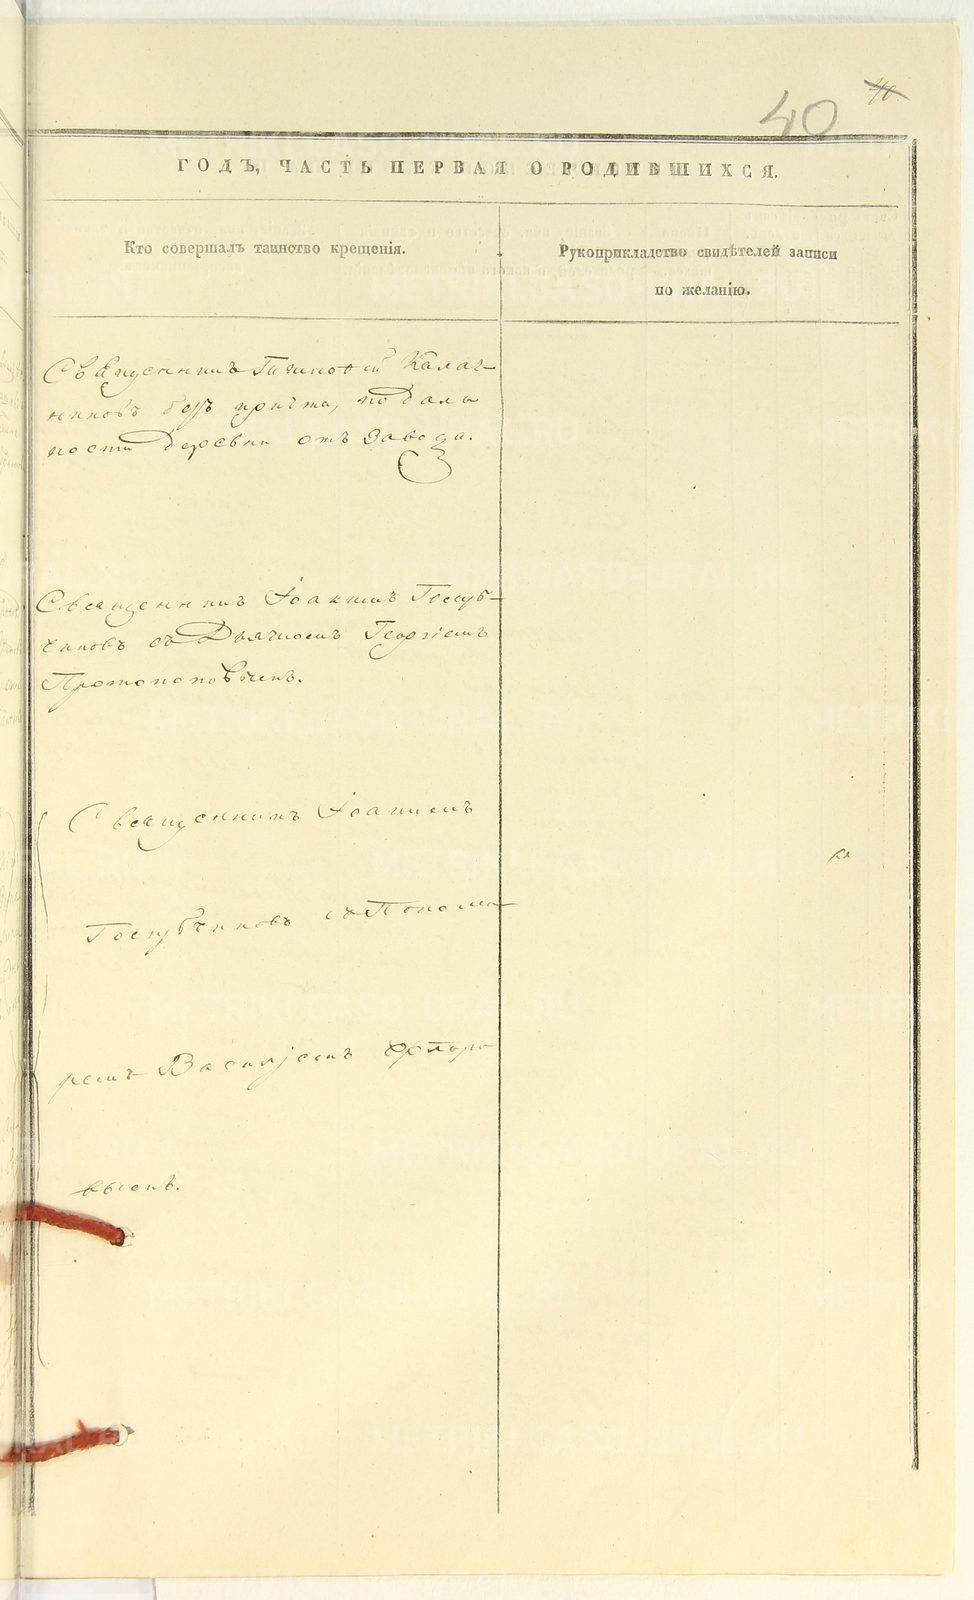 40
40.
ГОДЪ, ЧАСТЬ ПЕРВАЯ О РОДИВШИХСЯ.
Кто совершалъ таинство крещенія.
Рукоприкладство свидѣтелей записи
по желанію.
Священникъ Тимоѳей Калач-
никовъ безъ причта, по даль
ности Деревни отъ завода.
Священникъ Іоакимъ Голуб-
чиковъ съ Дьячкомъ Георгіемъ
Протопоповымъ.
Священникъ Іоакимъ
Голубчиковъ съ Понома-
ремъ Василіемъ
METRIKI.GASO-URAL.RU